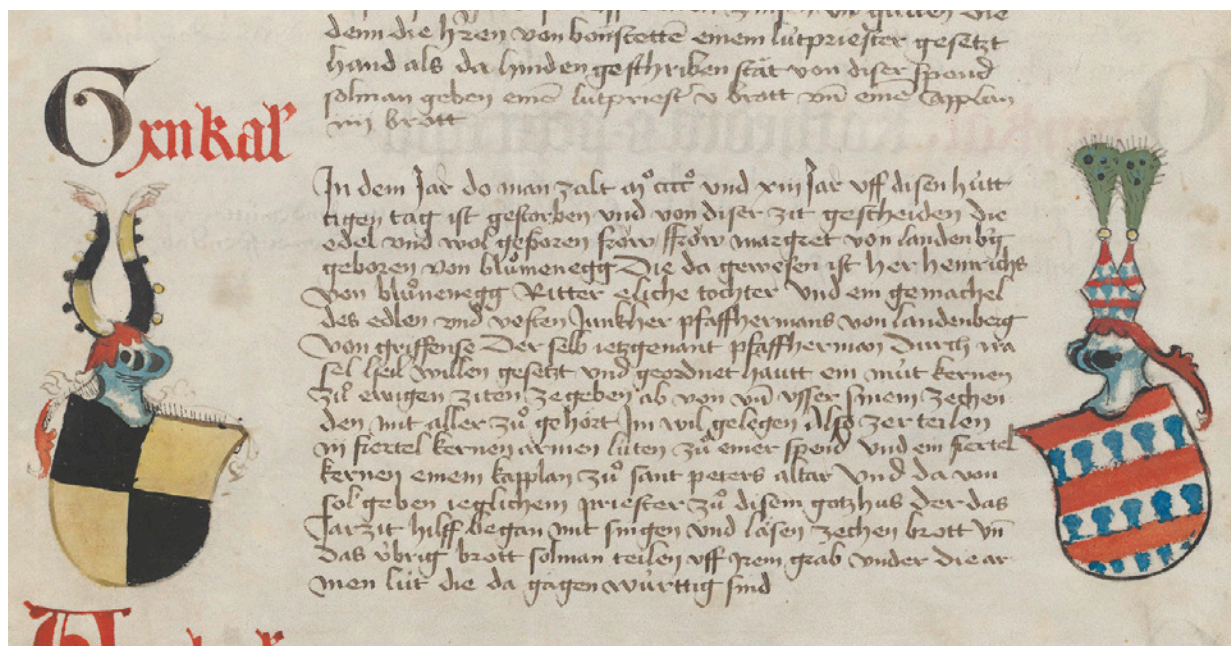 denn die hren von bonstettē einem lütpriester gesetzt
hand als da hinden geschriben stăt von diser spend
solman geben eine lutpriest v brott vn eine Capplan
iiij brott
G xn kal
In dem Jar do man zalt mͦ ccccͦ und xiii Jar vff disen hütt
tigen tag ist gestorben und von diser zit gescheiden die
edel und wol geboren frow ffrow margret von landenbg
geboren von blůmenegg Die da gewesen ist her heinrichs
von blůmenegg Ritter eliche tochter und ein gemachel
des edlen und vesten Junkher pfaffhermans von landenberg
von griffense Der selb ietzgenant pfaffherman Durch ira
sel heil willen gesetzt und geordnet hautt ein mut kernen
zů ewigen ziten zegeben ab von vn vsser sinem zechen
den mit aller zů gehört Im wil gelegen Also zerteilen
iii fiertel kernen armen luten zů einer spend und ein fiertel
kernen einem kapplan zů sant peters altar Und da von
sol geben ieglichem priester zů disem gotzhus der das
Jarzit hilff began mit singen und läsen zechen brott vn
das übrig brott solman teilen vff irem grab under die ar
men lüt die da gägen württig sind